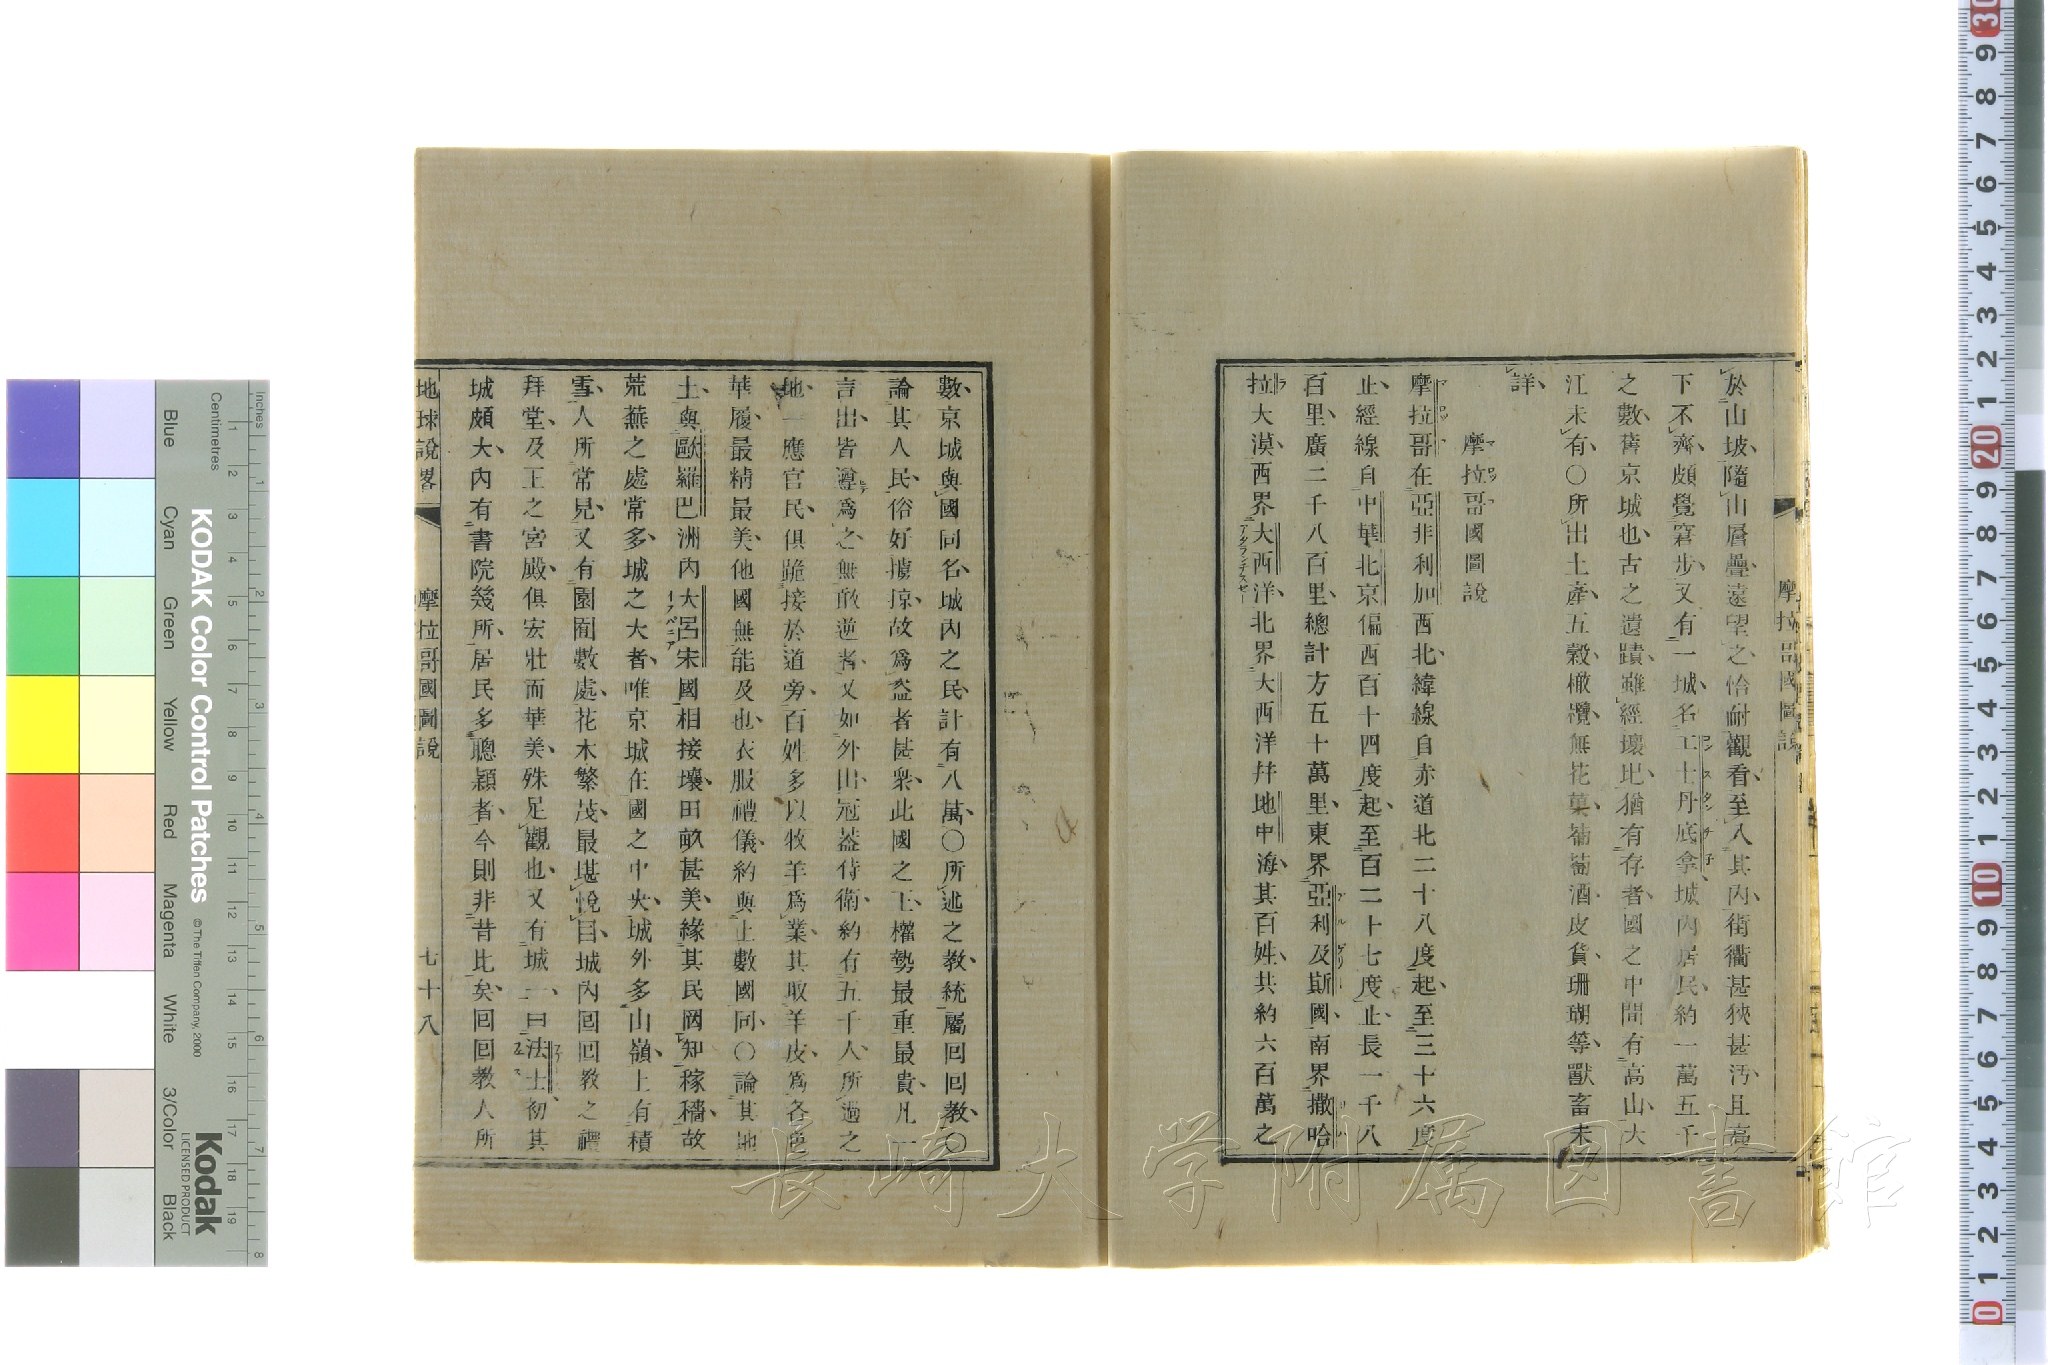 於山坡隨山層疊遠望之恰耐觀看至入其內街衢甚狹甚汚且高
下不齊頗覺窘步又有一城名工士丹底拿城內居民約一萬五千
之數舊京城也古之遺蹟雖經壞圯猶有存者國之中間有高山大
江未有〇所出土產五穀橄欖無花菓葡萄酒皮貨珊瑚等獸畜未
詳
摩拉哥國圖說
摩拉哥在亞非利加西北緯線自赤道北二十八度起至三十六度
止經線自中華北京偏西百十四度起至百二十七度止長一千八
百里廣二千八百里總計方五十萬里東界亞利及斯國南界撒哈
拉大漠西界大西洋北界大西洋幷地中海其百姓共約六百萬之
數京城與國同名城內之民計有八萬〇所述之教統屬回回教〇
論其人民俗好擄掠故爲盜者甚衆此國之王權勢最重最貴凡一
言出皆遵爲之無敢逆者又如外出冠蓋侍衛約有五千人所過之
地一應官民俱跪接於道旁百姓多以牧羊爲業其取羊皮爲各
華履最精最美他國無能及也衣服禮儀約與上數國同〇論其地
土與歐羅巴洲內大呂宋國相接壤田畝甚美緣其民罔知稼穡故
荒蕪之處常多城之大者唯京城在國之中央城外多山嶺上有積
雪人所常見又有園囿數處花木繁茂最堪悅目城內回回教之禮
拜堂及王之宮殿俱宏壯而華美殊足觀也又有城一曰法士初其
城頗大內有書院幾所居民多聰穎者今則非昔比矣回回教人所
地球說畧 摩拉哥國圖說 七十八
摩拉哥國圖說
長崎大学附属図書館
KODAK Color Control Patches
© The Tiffen Company, 2000
Kodak
LICENSED PRODUCT
Inches
Centimetres
Blue Cyan Green Yellow Red Magenta White 3/Color Black